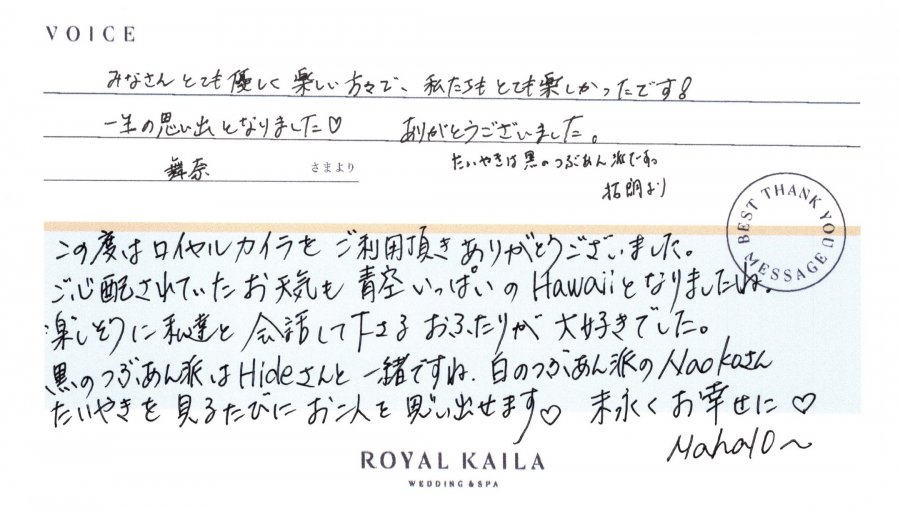 VOICE
みなさんとても優しく楽しい方々で、私たちもとても楽しかったです!
一生の思い出となりました♡ ありがとうございました。
舞奈 さまより たいやきは黒のつぶあん派ですっ
拓朗より
BEST THANK YOU MESSAGE
この度はロイヤルカイラをご利用頂きありがとうございました。
ご心配されていたお天気も青空いっぱいのHawaiiとなりましたね。
楽しそうに私達と会話して下さるおふたりが大好きでした。
黒のつぶあん派はHideさんと一緒ですね。白のつぶあん派のNaokoさん
たいやきを見るたびにお二人を思い出せます♡ 末永くお幸せに♡
Mahalo〜
ROYAL KAILA
WEDDING & SPA